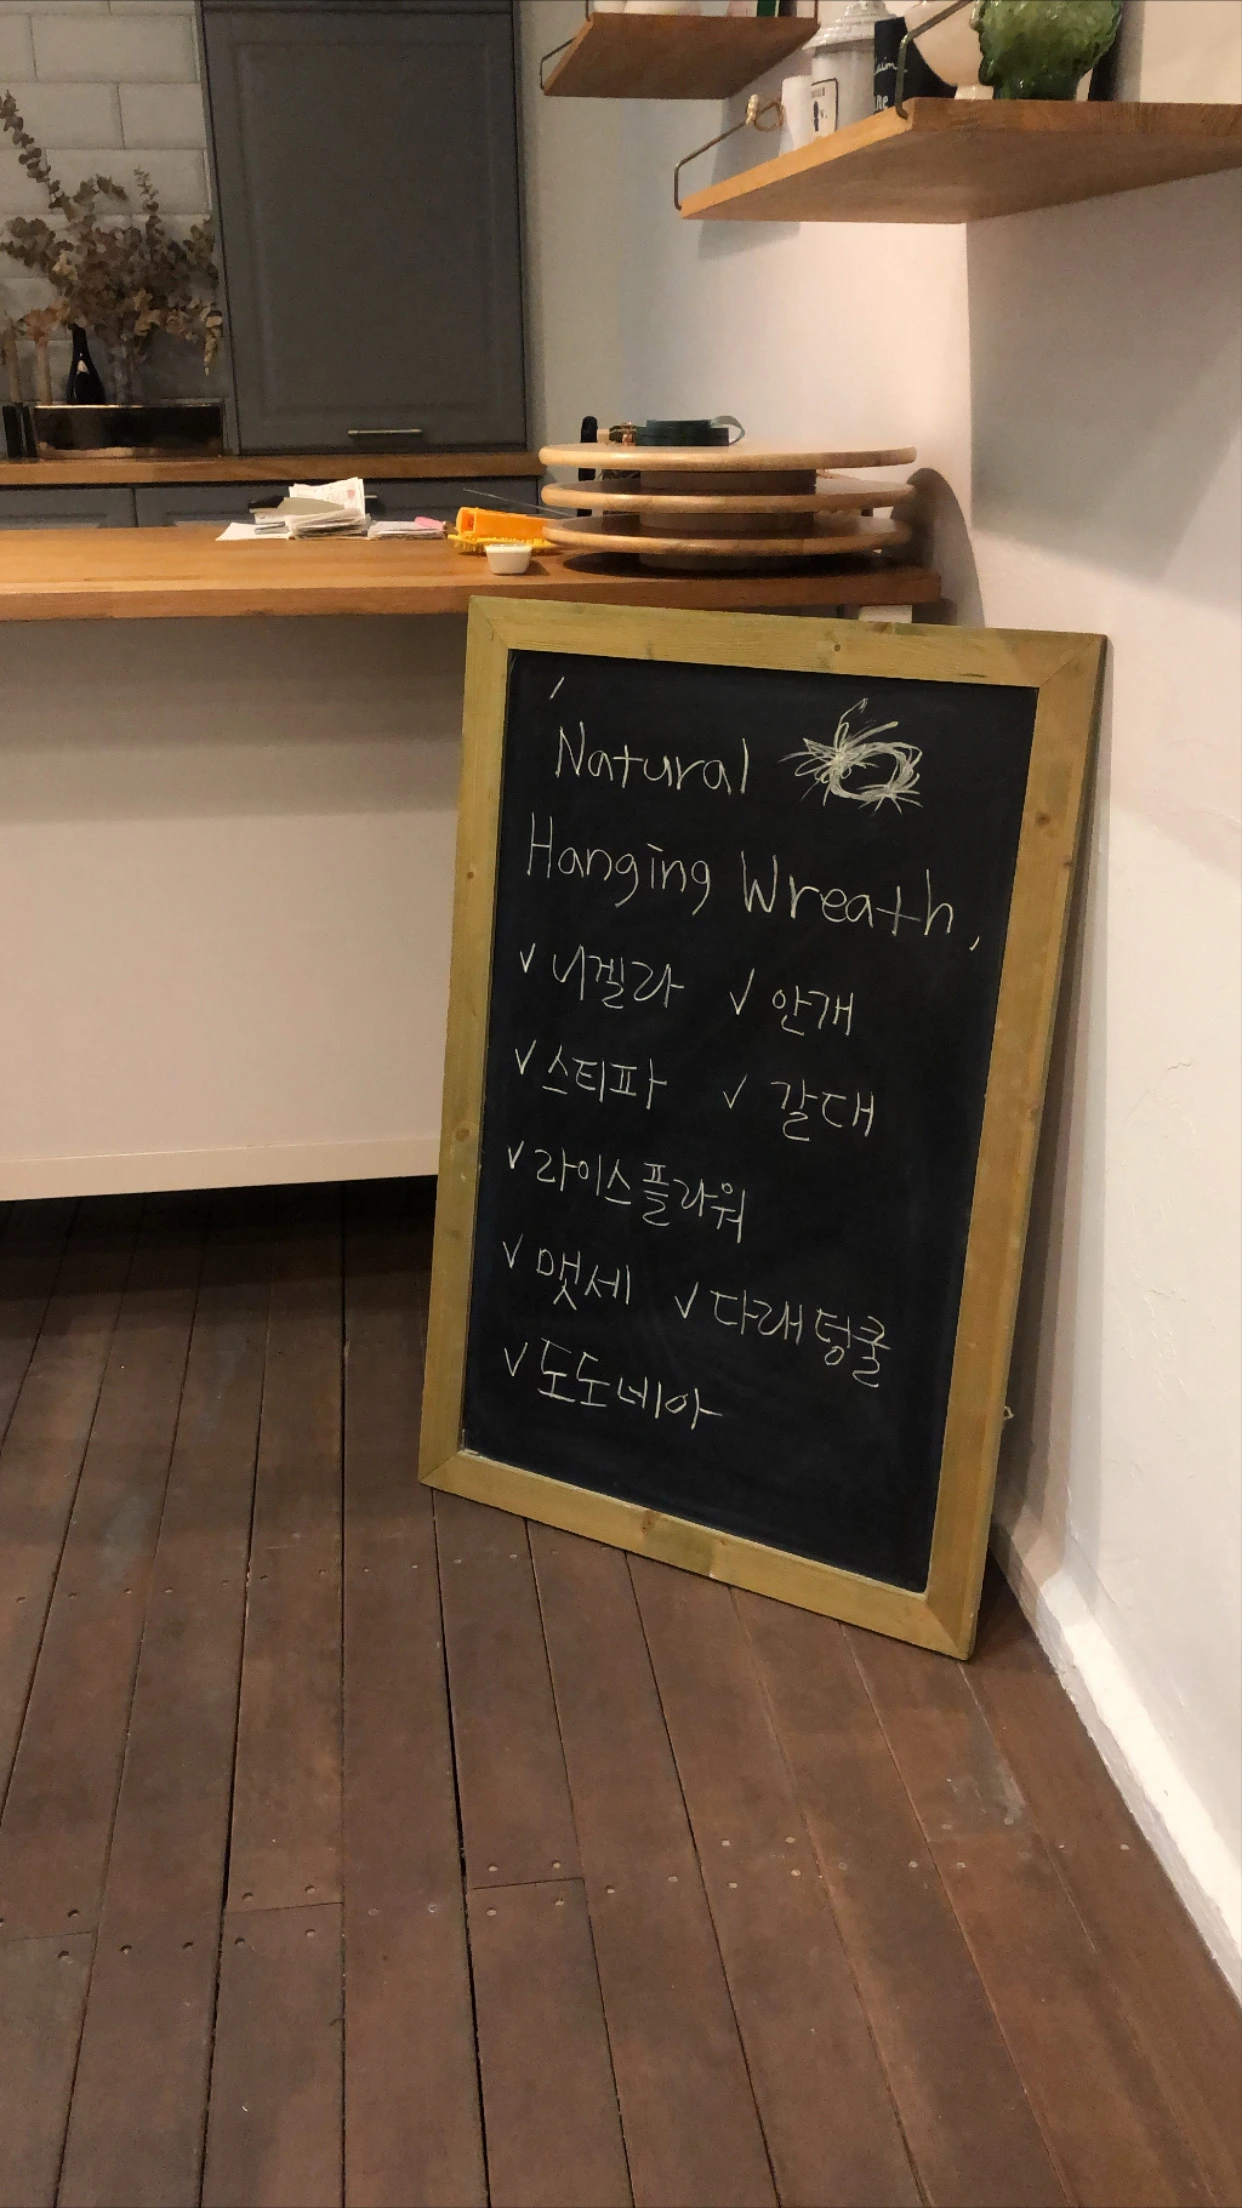 Natural
Hanging Wreath,
✓ 니겔라 ✓ 안개
✓ 스티파 ✓ 갈대
✓ 라이스플라워
✓ 맷세 ✓ 다래덩쿨
✓ 도도네아